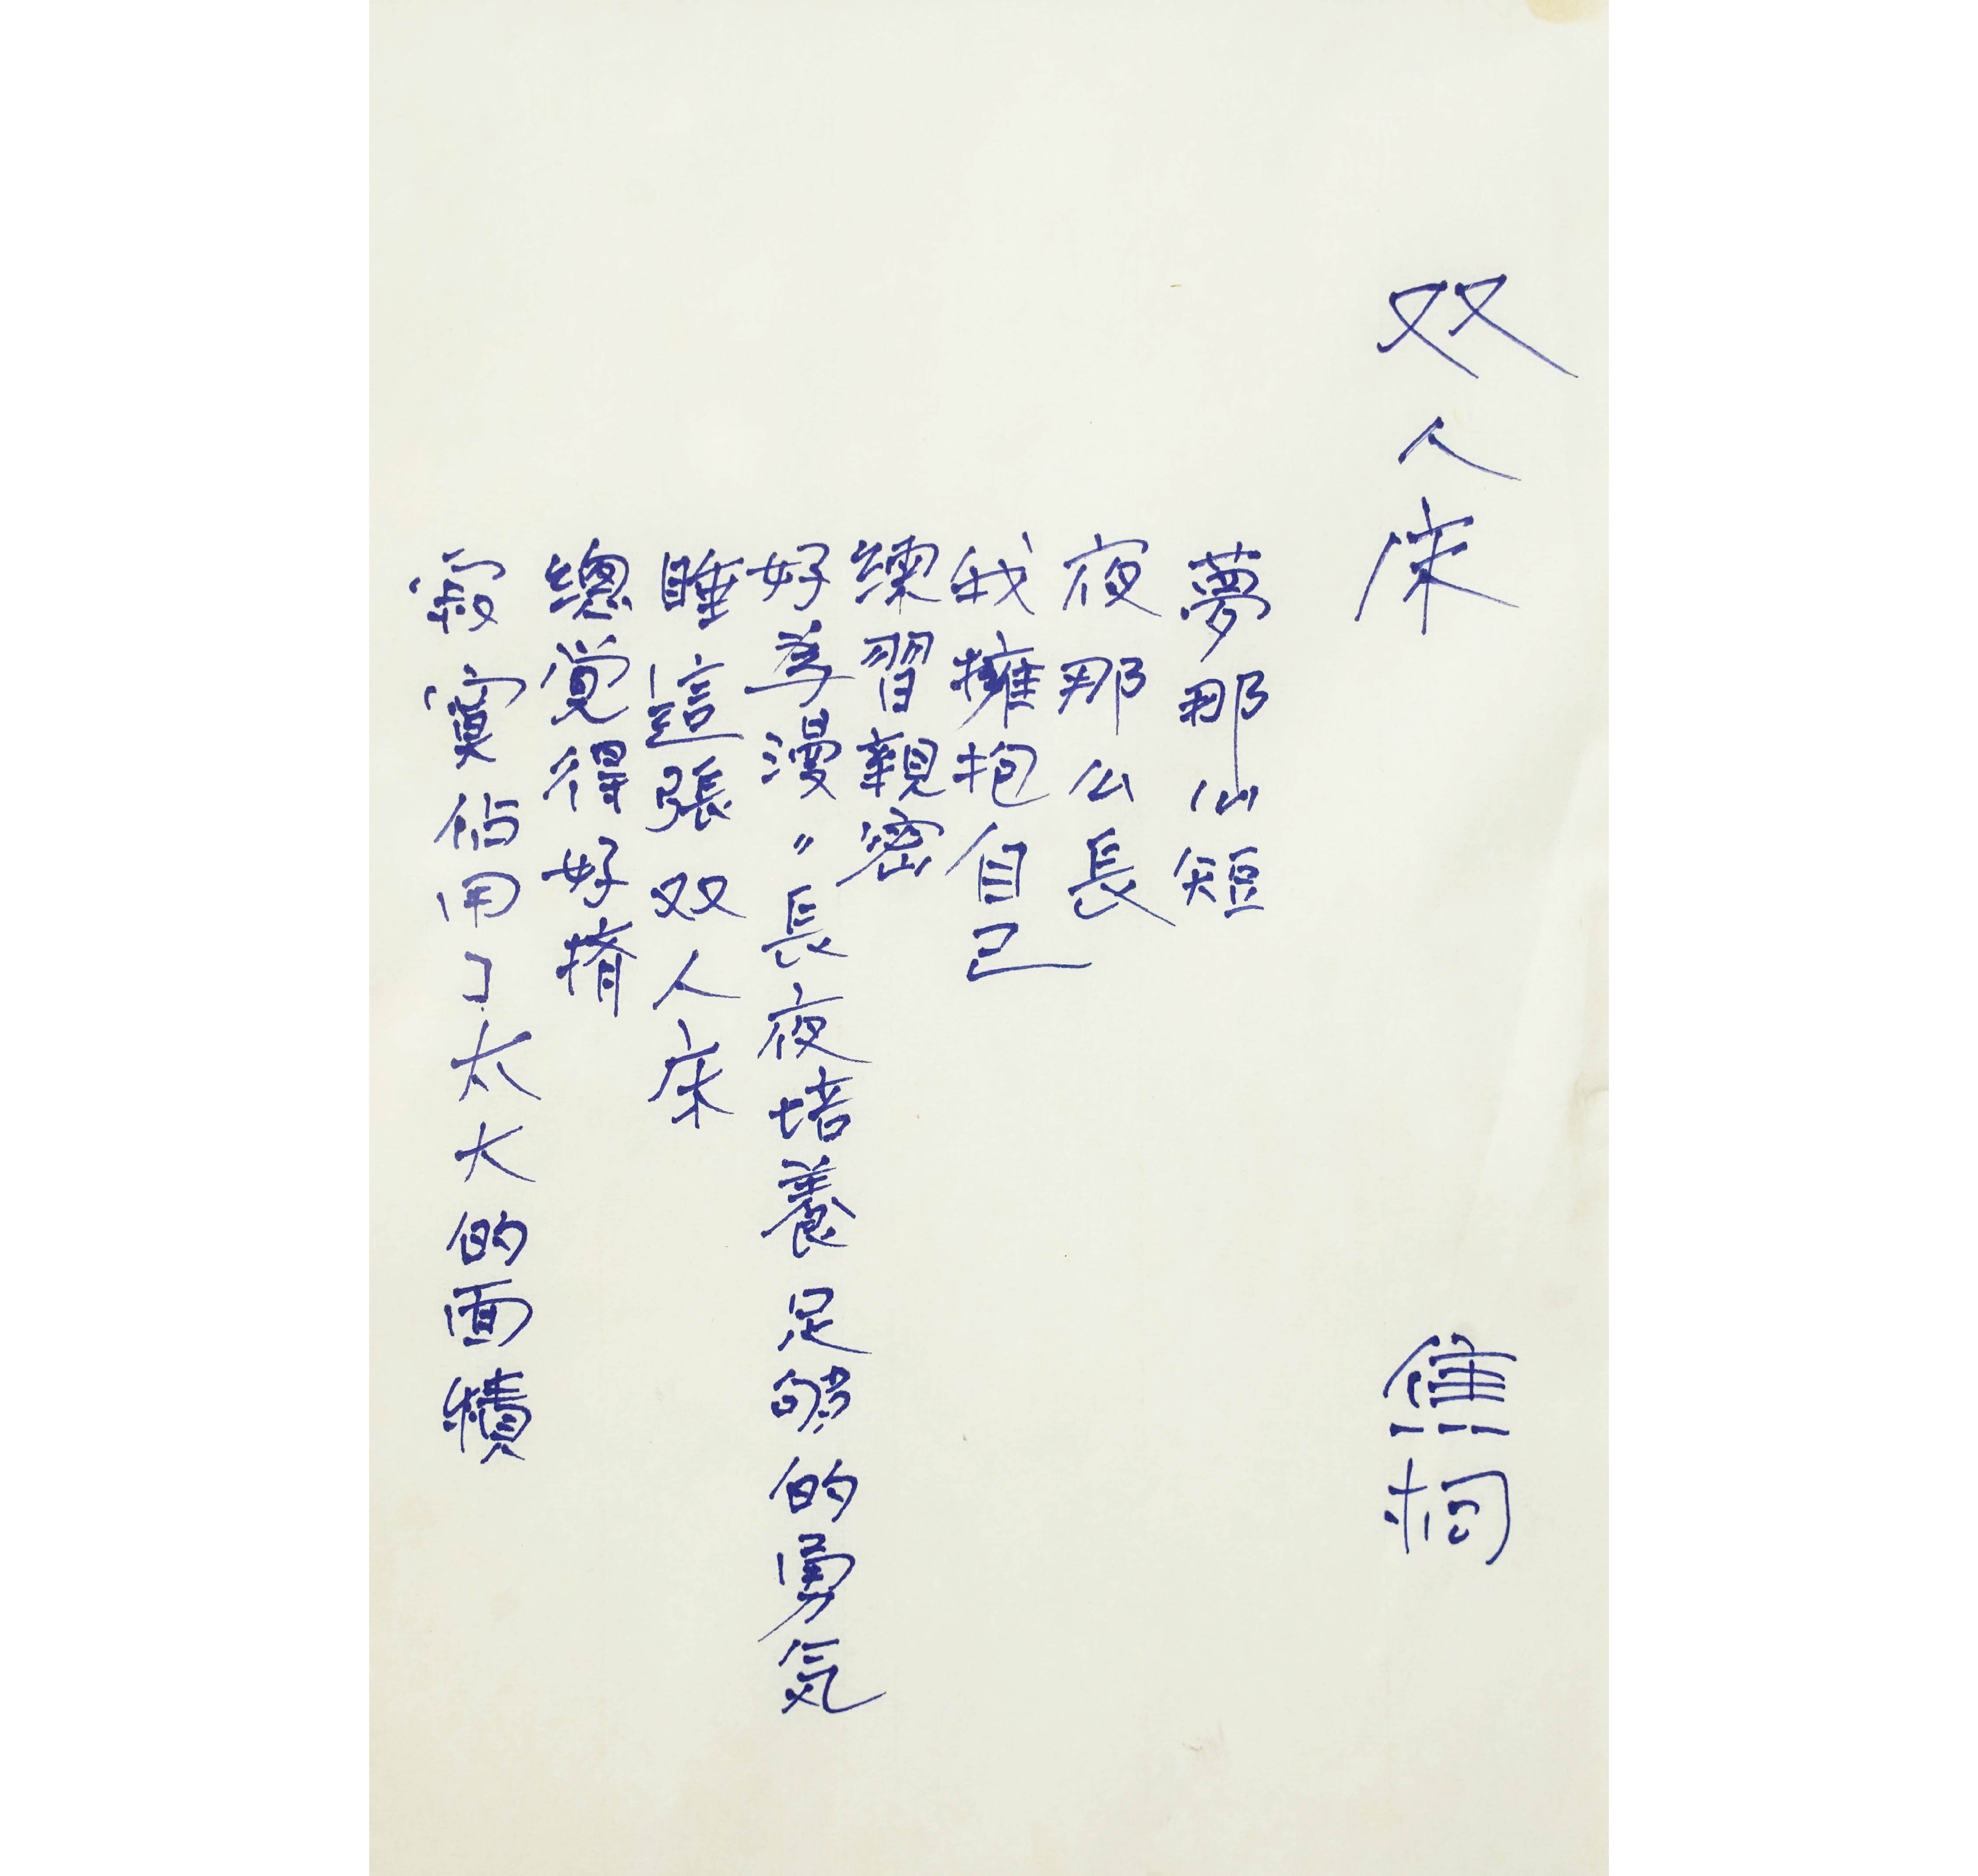 双人床 焦桐
夢那么短
夜那么長
我擁抱自己
練習親密
好為漫〃長夜培養足够的勇気
睡這張双人床
總覚得好擠
寂寞佔用了太大的面積